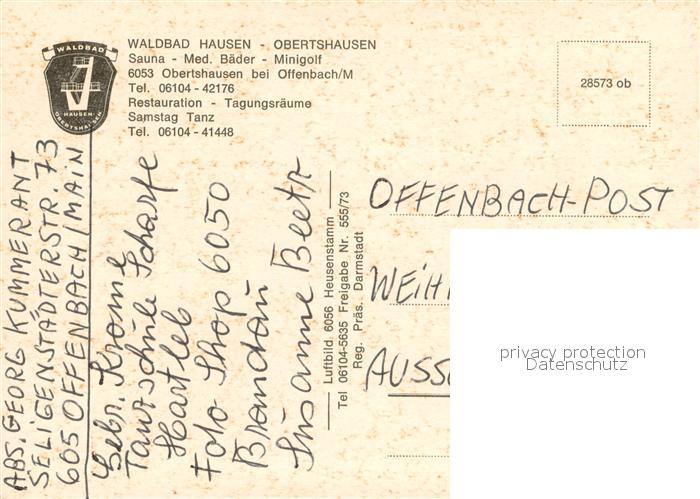 WALDBAD
HAUSEN
OBERTSHAUSEN
WALDBAD HAUSEN - OBERTSHAUSEN
Sauna - Med. Bäder - Minigolf
6053 Obertshausen bei Offenbach/M
Tel. 06104 - 42176
Restauration - Tagungsräume
Samstag Tanz
Tel. 06104 - 41448
28573 ob
ABS. GEORG KUMMERANT
SELIGENSTÄDTERSTR. 73
605 OFFENBACH/MAIN
Gebr. Krome
Tanzschule Scharfe
Hartleb
Foto Shop 6050
Brandau
Susanne Beetz
Luftbild. 6056 Heusenstamm
Tel 06104-5635 Freigabe Nr. 555/73
Reg. Präs. Darmstadt
OFFENBACH-POST
WEIH
AUSS
privacy protection
Datenschutz